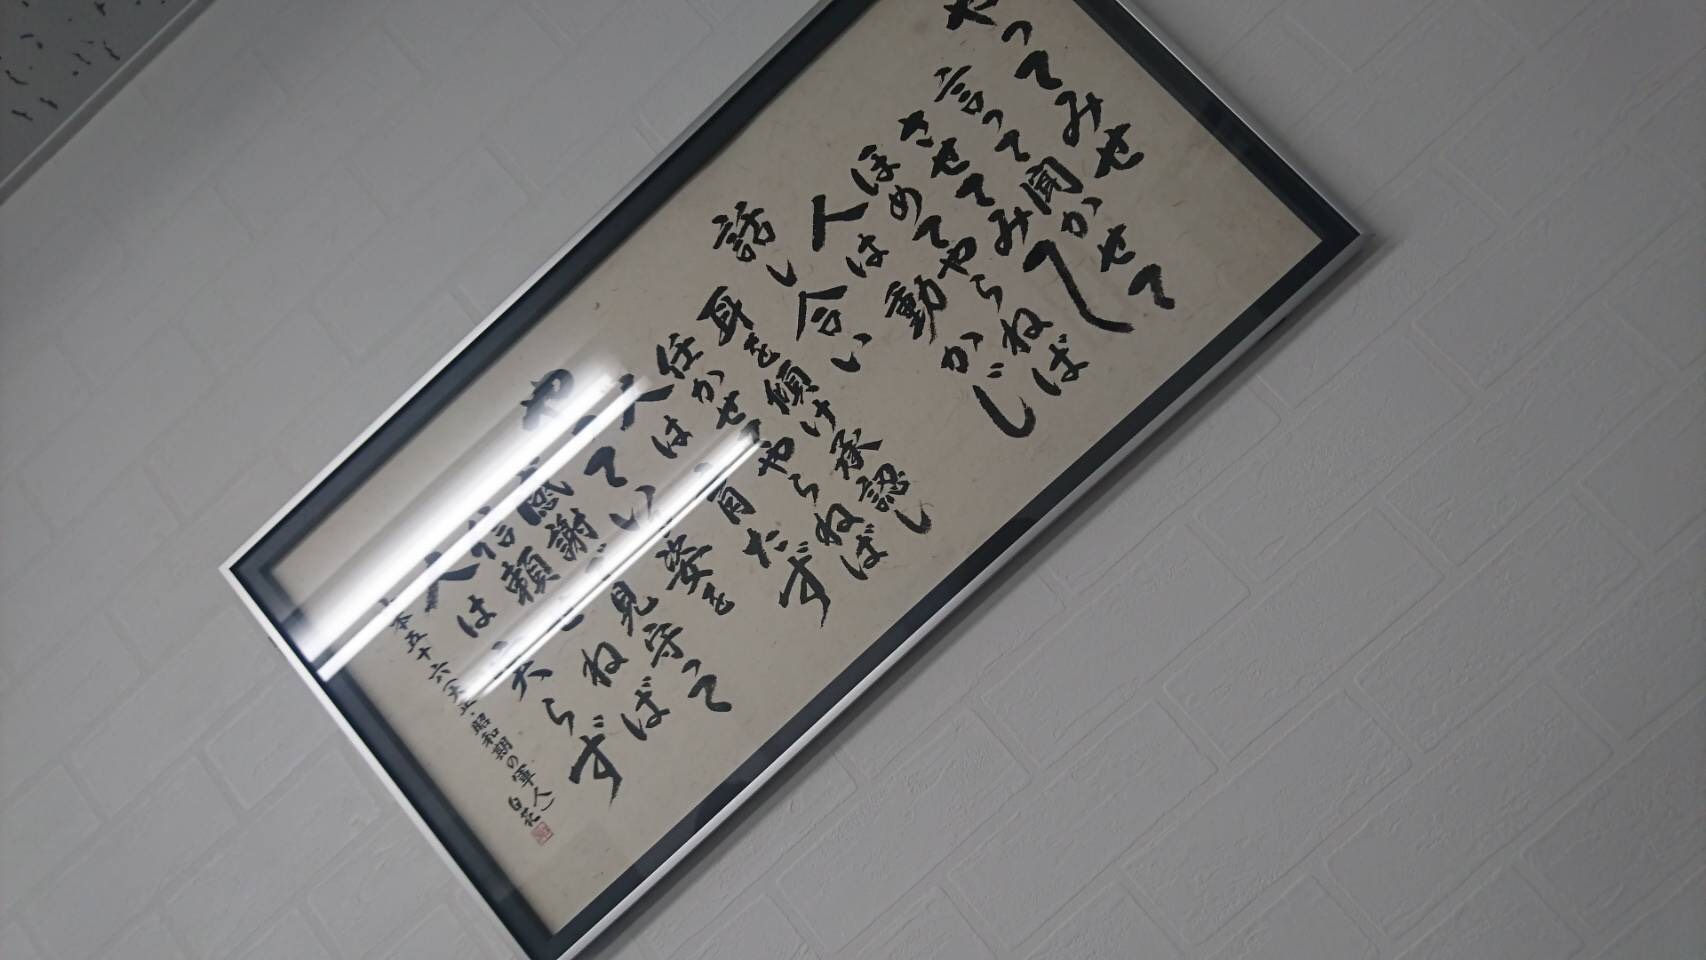 やってみせ
言って聞かせて
させてみて
ほめてやらねば
人は動かじ
話し合い
耳を傾け承認し
任かせてやらねば
人は育たず
やっている姿を
感謝で見守って
信頼せねば
人は実らず
本五十六(大正・昭和期の軍人)
白花